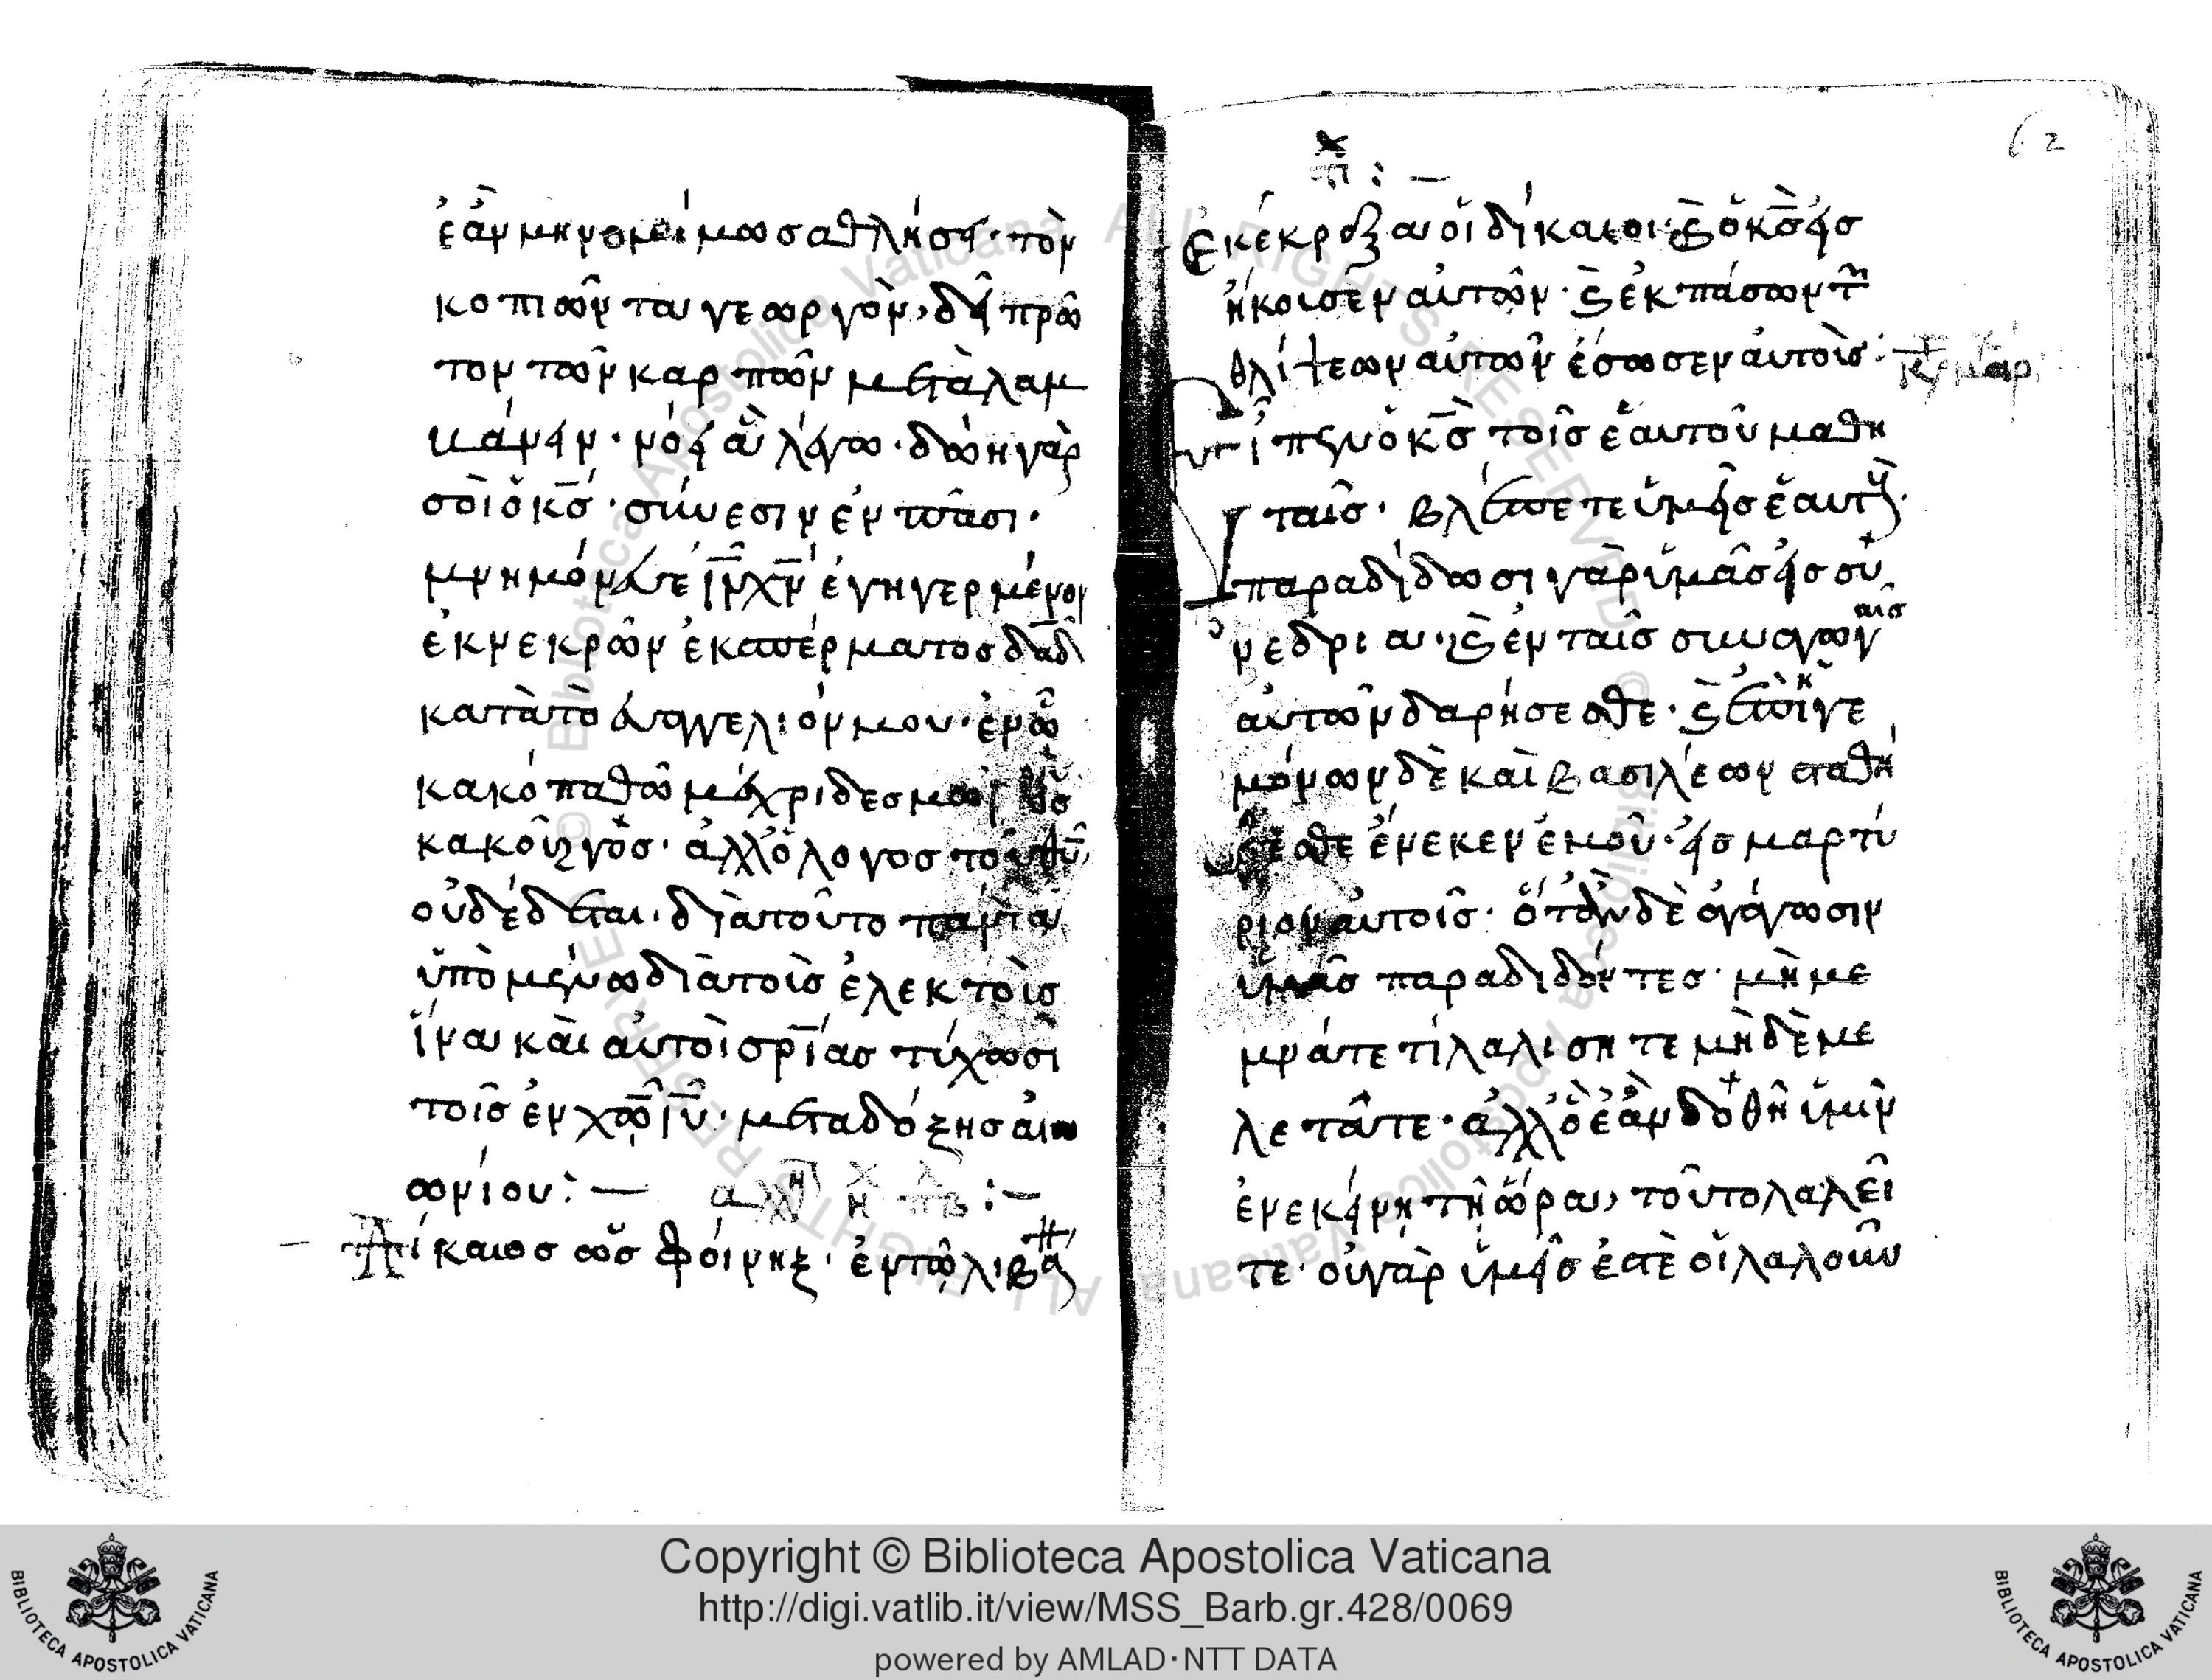 ἐὰν μὴ νομίμως ἀθλήσει· τὸν
κοπιῶντα γεωργὸν, δεῖ πρῶ
τον τῶν καρπῶν μεταλαμ
βάνειν· νόει ἃ λέγω· δώη γάρ
σοι ὁ κ̅ς̅· σύνεσιν ἐν πᾶσι·
μνημόνευε ι̅ν̅ χ̅ν̅ ἐγηγερμένον
ἐκ νεκρῶν ἐκ σπέρματος δ̅α̅δ̅
κατὰ τὸ εὐαγγελιόν μου· ἐν ᾧ
κακοπαθῶ μέχρι δεσμῶν ὡς
κακοῦργος· ἀλλ' ὁ λόγος τοῦ θ̅υ̅
οὐ δέδεται· διὰ τοῦτο πάντα
ὑπομένω διὰ τοὺς ἐλεκτοὺς
ἵνα καὶ αὐτοὶ σ̅ρ̅ίας τύχωσι
τοῖς ἐν χ̅ω̅ ι̅υ̅· μετὰ δόξης αἰω
ωνίου: —
Δίκαιος ὡς φοίνιξ· ἐν τῷ λιβά
62
Ἐκέκραξαν οἱ δίκαιοι καὶ ὁ κ̅ς̅ εἰσ
ήκουσεν αὐτῶν· καὶ ἐκ πασῶν τῶν
θλίψεων αὐτῶν ἔσωσεν αὐτούς:
εἶπεν ὁ κ̅ς̅ τοῖς ἑαυτοῦ μαθη
ταῖς· βλέπετε ὑμεῖς ἑαυτούς·
παραδίδωσι γὰρ ὑμᾶς εἰς συ
νέδρια· καὶ ἐν ταῖς συναγωγαῖς
αὐτῶν δαρήσεσθε· καὶ ἐπὶ ἡγε
μόνων δὲ καὶ βασιλέων σταθή
σεσθε ἕνεκεν ἐμοῦ· εἰς μαρτύ
ριον αὐτοῖς· ὅταν δὲ ἀγάγωσιν
ὑμᾶς παραδιδόντες· μὴ με
μνάτε τί λαλισητε μὴδὲ με
λετᾶτε· ἀλλ' ὃ ἐὰν δοθῇ ὑμῖν
ἐν ἐκείνῃ τῇ ὥρα, τοῦτο λαλεῖ
τε· οὐ γὰρ ὑμεῖς ἐστὲ οἱ λαλοῦν
Copyright © Biblioteca Apostolica Vaticana
http://digi.vatlib.it/view/MSS_Barb.gr.428/0069
powered by AMLAD·NTT DATA
BIBLIOTECA APOSTOLICA VATICANA
BIBLIOTECA APOSTOLICA VATICANA